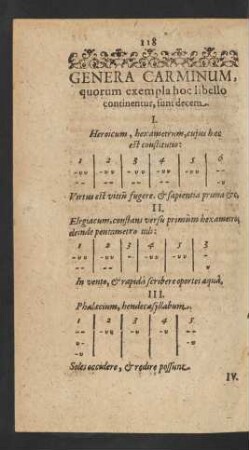 118
GENERA CARMINUM,
quorum exempla hoc libello
continentur, sunt decem.
I.
Heroicum, hexametrum, cujus hæc
est constitutio:
1 2 3 4 5 6
-υυ -υυ -υυ -υυ -υυ --
-- -- -- -- -- -υ
Virtus est vitiū fugere, & sapientia prima &c,
II.
Elegiacum, constans versu primùm hexametro,
deinde pentametro tali:
1 2 3 4 5
-υυ -υυ - -υυ -υυ -
-- -- υ
In vento, & rapidâ scribere oportet aquâ,
III.
Phalæcium, hendecasyllabum.
1 2 3 4 5
-- -υυ -υ -υ --
-υ
Soles occidere, & redire possunt.
IV.